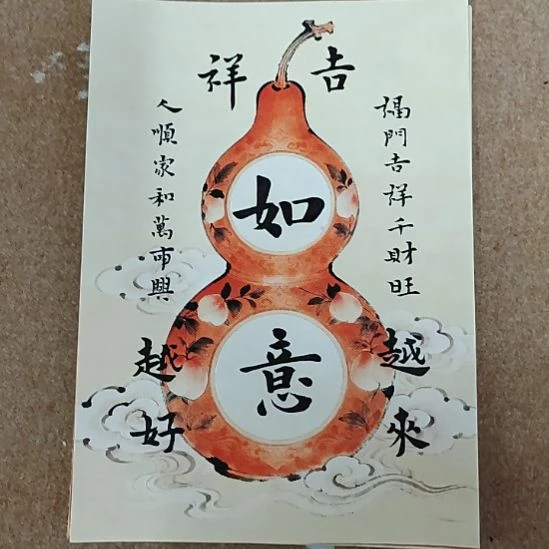 吉祥
如意
福門吉祥千財旺
人順家和萬事興
越來
越好